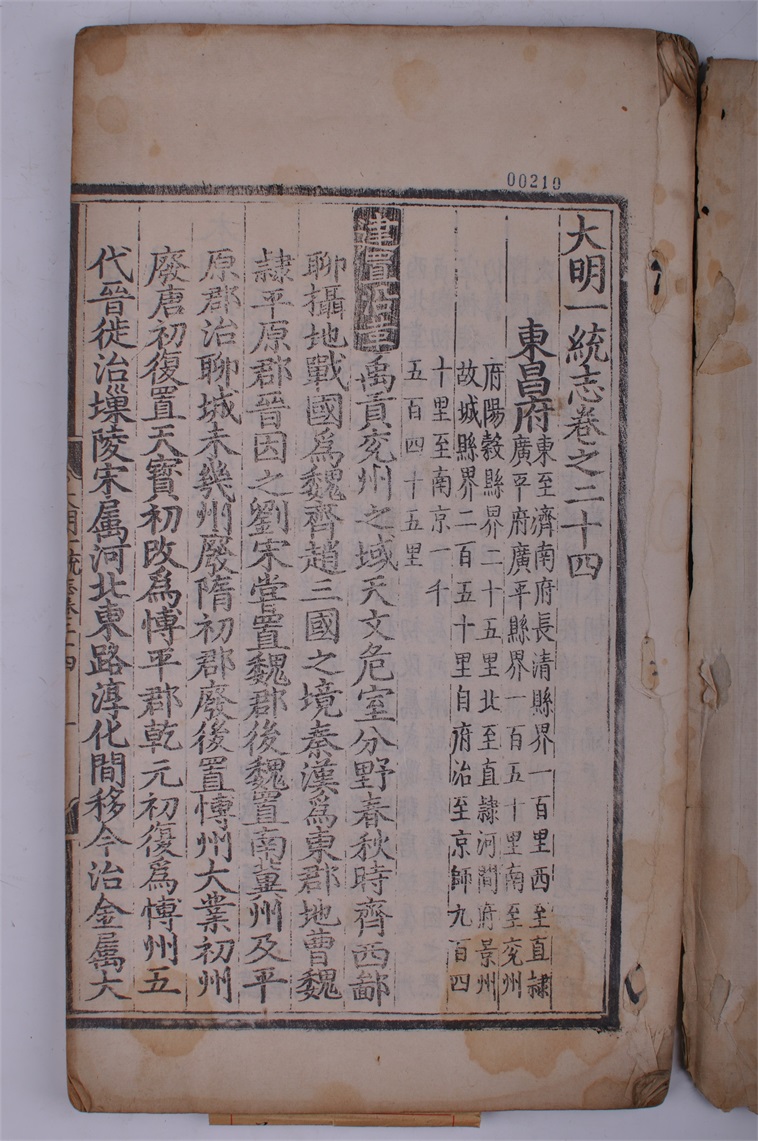 00219
大明一統志卷之二十四
東昌府
東至濟南府長清縣界一百里西至直隸
廣平府廣平縣界一百五十里南至兖州
府陽穀縣界二十五里北至直隸河間府景州
故城縣界二百五十里自府治至京師九百四
十里至南京一千
五百四十五里
建置沿革禹貢兖州之域天文危室分野春秋時齊西鄙
聊攝地戰國爲魏齊趙三國之境秦漢爲東郡地曹魏
隸平原郡晉因之劉宋嘗置魏郡後魏置南冀州及平
原郡治聊城未幾州廢隋初郡廢後置博州大業初州
廢唐初復置天寶初改爲博平郡乾元初復爲博州五
代晉徙治塛陵宋屬河北東路淳化間移今治金屬大
大明一統志卷二十四
一